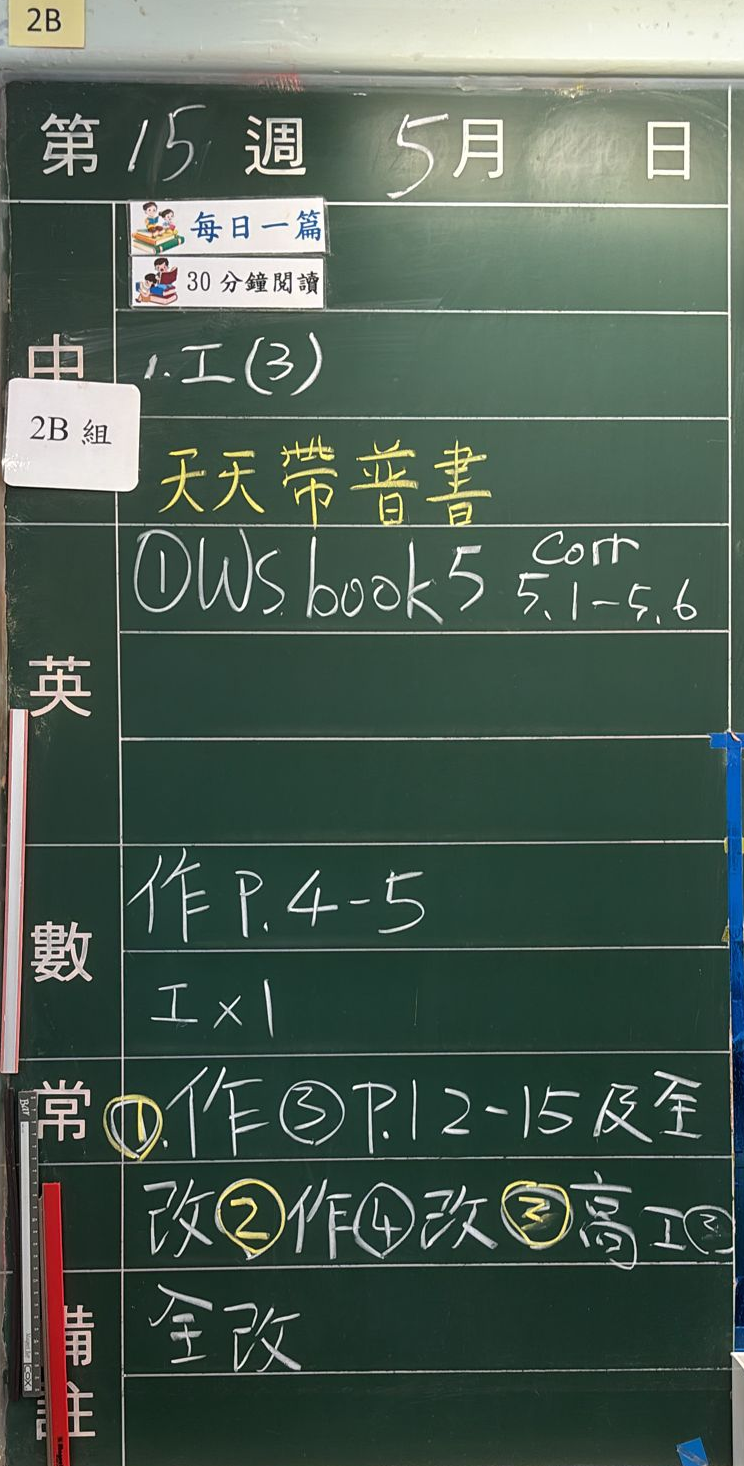 2B
第 15 週 5 月 日
每日一篇
30 分鐘閱讀
中
1. 工(3)
2B 組
天天帶普書
英
①WS. book5 Corr 5.1-5.6
數
作 P. 4-5
工 x 1
常
①.作③P.12-15及全
改②作④改③高工②
備註
全改